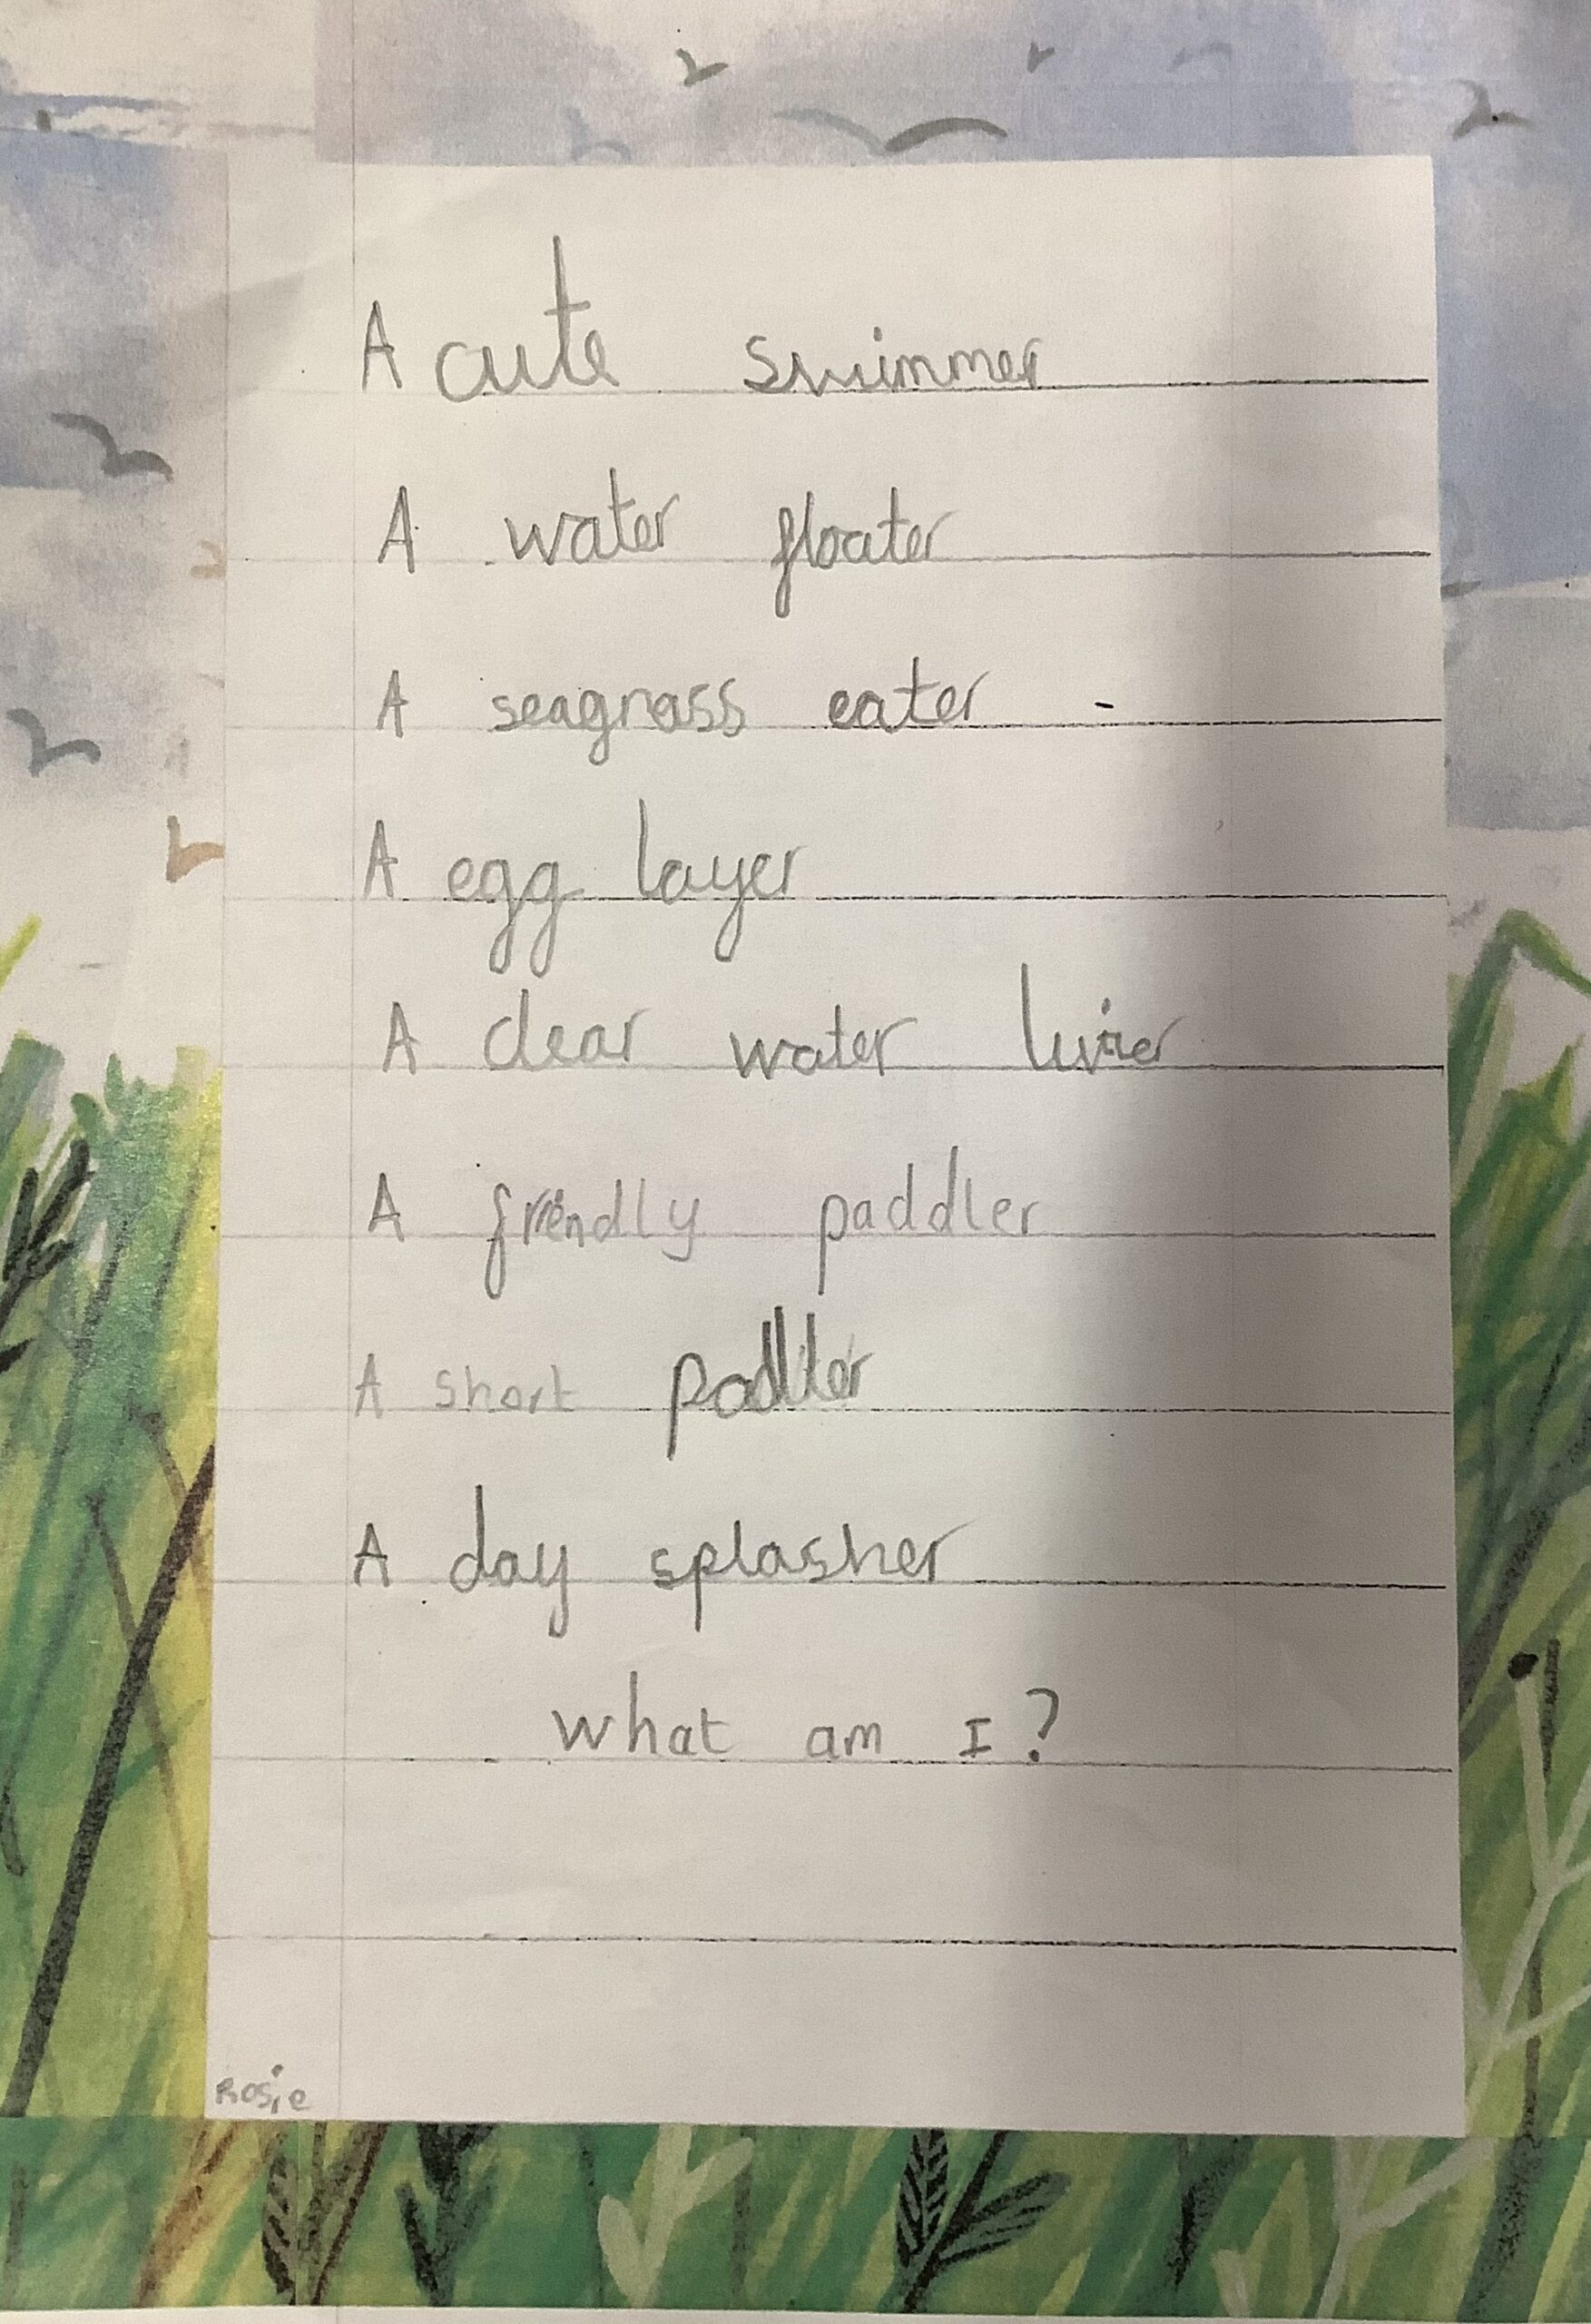 A cute swimmer
A water floater
A seagrass eater
A egg layer
A clear water livier
A friendly paddler
A short
A day splasher
What am I?
Rosie